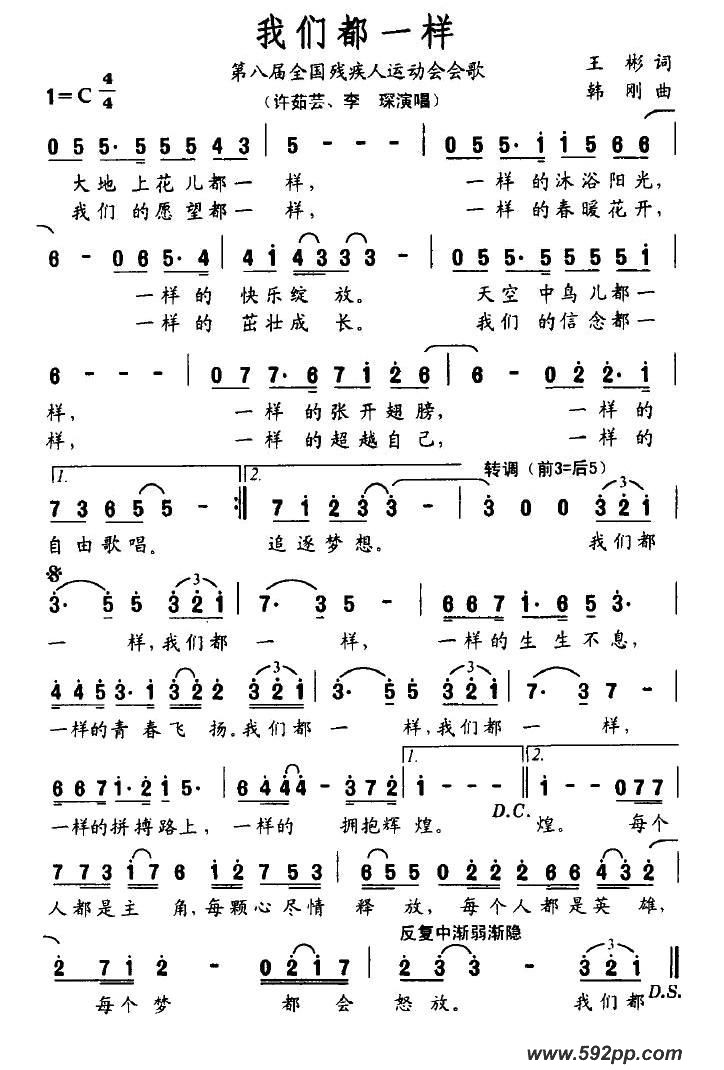 我们都一样
第八届全国残疾人运动会会歌
王 彬 词
1=C 4/4
(许茹芸、李 琛演唱)
韩 刚 曲
0 5 5· 5 5 5 5 4 3 | 5 - - - | 0 5 5· i i 5 6 6 |
大地 上花儿都一 样, 一样 的沐浴阳光,
我们 的愿望都一 样, 一样 的春暖花开,
6 - 0 6 5· 4 | 4 i 4 3 3 3 - | 0 5 5· 5 5 5 5 i |
一样的 快乐绽 放。 天空 中鸟儿都一
一样的 茁壮成 长。 我们 的信念都一
6 - - - | 0 7 7· 6 7 i 2 6 | 6 - 0 2 2· i |
样, 一样 的张开翅膀, 一样的
样, 一样 的超越自己, 一样的
1. 2. 转调(前3=后5)
7 3 6 5 5 - :‖ 7 i 2 3 3 - | 3 0 0 3 2 i |
自由歌唱。 追逐梦想。 我们都
3· 5 5 3 2 i | 7· 3 5 - | 6 6 7 i· 6 5 3· |
一 样,我们都 一 样, 一样的生生不息,
4 4 5 3· i 3 2 2 3 2 i | 3· 5 5 3 2 i | 7· 3 7 - |
一样的青春飞 扬。我们都 一 样,我们都一 样,
1. 2.
6 6 7 i· 2 i 5· | 6 4 4 4 - 3 7 2 | i - - - ‖ i - - 0 7 7 |
一样的拼搏路上, 一样的 拥抱辉 煌。 D.C. 煌。 每个
7 7 3 i 7 6 i 2 7 5 3 | 6 5 5 0 2 2 2 6 6 4 3 2 |
人都是主 角,每颗心尽情 释 放, 每个人都是英 雄,
反复中渐弱渐隐
2 7 i 2 - | 0 2 i 7 | 2 3 3 - 3 2 i ‖
每个梦 都 会 怒放。 我们都
D.S.
www.592pp.com